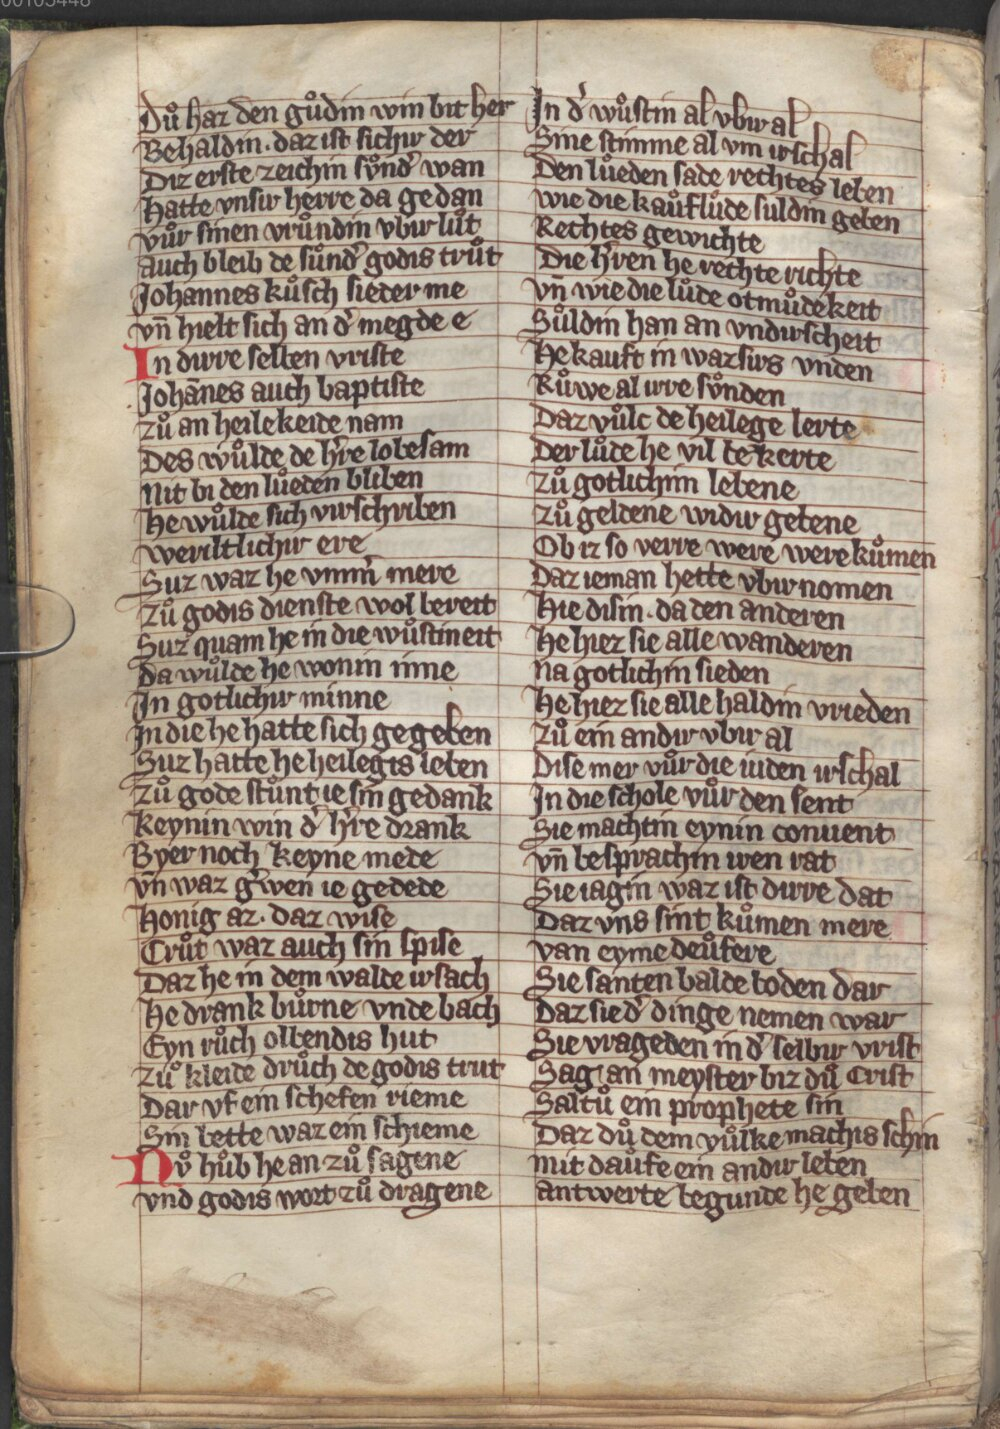 00103448
Dů haz den gůdin win bit her
Behaldin · daz ist sichir der
Diz erste zeichin sůnd᾽ wan
Hatte vnsir herre da gedan
vůr sinen vrůndin vbir lůt
auch bleib de sůnd᾽ godis trůt
Johannes kůsch sieder me
vn̄ hielt sich an d᾽ megde e
In dirre selben vriste
Johānes auch baptiste
zů an heilekeide nam
Des wůlde de h᾽re lobesam
Nit bi den lůeden bliben
he wůlde sich virschriben
weriltlichir ere
Suz waz he vmm̄ mere
zů godis dienste wol bereit
Suz quam he in die wůstineit
Da wůlde he wonin inne
In gotlichir minne
In die he hatte sich gegeben
Suz hatte he heilegis leben
zů gode stůnt ie sin gedank
keynin win d᾽ h᾽re drank
Byer noch keyne mede
vn̄ waz g᾽wen ie gedede
honig az · daz wise
Crůt waz auch sin spise
Daz he in dem walde irsach
he drank bůrne vnde bach
Eyn růch olbendis hut
zů kleide drůch de godis trut
Dar vf ein schefen rieme
Sin bette waz ein schieme
Nů hůb he an zů sagene
vnd godis wort zů dragene
In d᾽ wůstin al vbir al
Sine stimme al vm irschal
Den lůeden sade rechtes leben
wie die kaůflůde suldin geben
Rechtes gewichte
Die h᾽ren he rechte richte
vn̄ wie die lůde otmůdekeit
Sůldin han an vndirscheit
he kauft in wazsirs vnden
Růwe al irre sůnden
Daz vůlc de heilege lerte
Der lůde he vil bekerte
zů gotlichim lebene
zů geldene widir gebene
Ob iz so verre were were kůmen
Daz ieman hette vbirnomen
hie disin · da den anderen
he hiez sie alle wanderen
na gotlichin sieden
he hiez sie alle haldin vrieden
zů ein andir vbir al
Dise mer vůr die iuden irschal
In die schole vůr den sent
Sie machtin eynin conuent
vn̄ besprachin iren rat
Sie iagin waz ist dirre dat
Daz vns sint kůmen mere
van eyme deůfere
Sie santen balde boden dar
Daz sie d᾽ dinge nemen war
Sie vrageden in d᾽ selbir vrist
Sag an meyster biz dů Crist
Saltů ein prophete sin
Daz dů dem vůlke machis schin
mit daůfe ein andir leben
antwerte begunde he geben